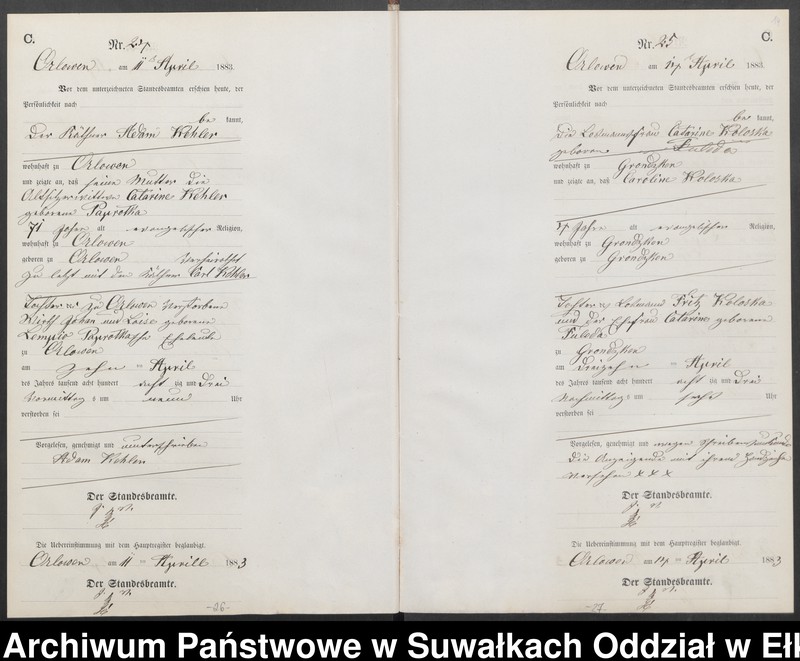 C.
Nr. 24
Orlowen am 11ten April 1883.
Vor dem unterzeichneten Standesbeamten erschien heute, der
Persönlichkeit nach
be kannt,
Der Käthner Adam Kehler
wohnhaft zu Orlowen
und zeigte an, daß seine Mutter die
Altsitzerwittwe Catarine Kehler
geborene Paprotka
71 Jahre alt evangelischer Religion,
wohnhaft zu Orlowen
geboren zu Orlowen Verheirathet
zu letzt mit dem Käthner Carl Kehler
Tochter der zu Orlowen Verstorbene
Wirth Johan und Loise geborene
Paprotkasche Eheleute
zu Orlowen
am zehn ten April
des Jahres tausend acht hundert acht zig und Drei
Vormittags um neun Uhr
verstorben sei
Vorgelesen, genehmigt und unterschrieben
Adam Kehler
Der Standesbeamte.
Die Uebereinstimmung mit dem Hauptregister beglaubigt.
Orlowen am 11 ten Aprill 1883
Der Standesbeamte.
-26-
C.
Nr. 25
Orlowen am 14ten April 1883.
Vor dem unterzeichneten Standesbeamten erschien heute, der
Persönlichkeit nach
be kannt,
Die Losmannsfrau Catarine Koloska
geborene Puleda
wohnhaft zu Grondzken
und zeigte an, daß Caroline Koloska
Jahre alt evangelischen Religion,
wohnhaft zu Grondzken
geboren zu Grondzken
Tochter des Losmann Fritz Koloska
und der Ehefrau Catarine geborene
Puleda
zu Grondzken
am Dreizehn ten April
des Jahres tausend acht hundert acht zig und Drei
Nachmittags um sechs Uhr
verstorben sei
Vorgelesen, genehmigt und wegen Schreibens
Die Anzeigende mit ihrem Handzeichen
Versehen x x x
Der Standesbeamte.
Die Uebereinstimmung mit dem Hauptregister beglaubigt.
Orlowen am 14 ten April 1883
Der Standesbeamte.
-27-
Archiwum Państwowe w Suwałkach Oddział w Ełk